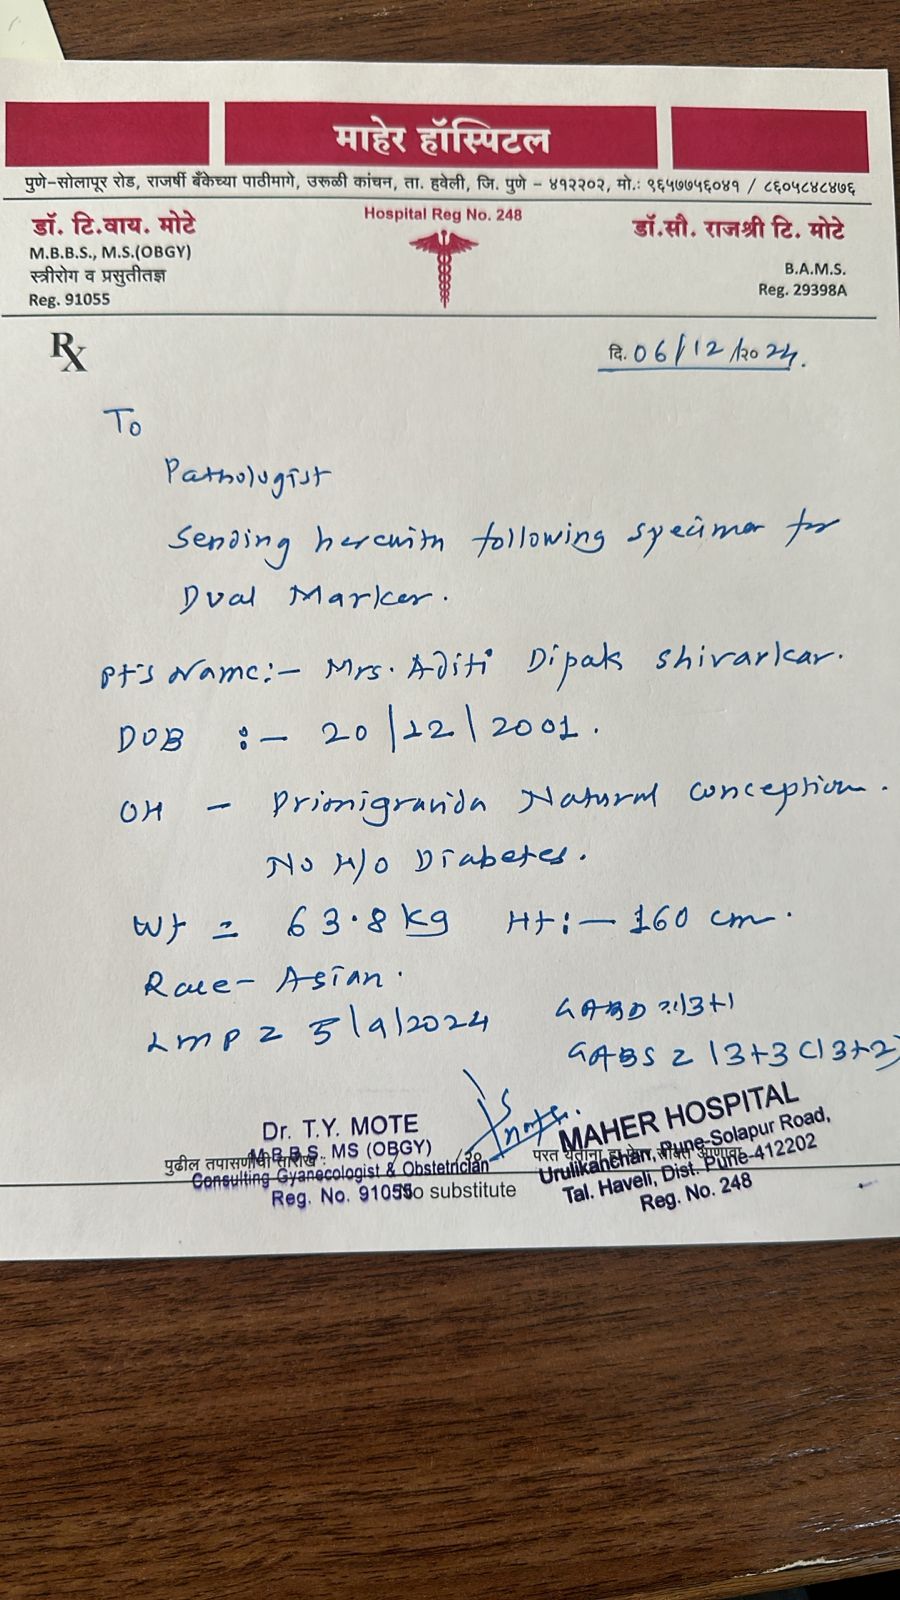 माहेर हॉस्पिटल
पुणे-सोलापूर रोड, राजर्षी बँकेच्या पाठीमागे, उरूळी कांचन, ता. हवेली, जि. पुणे - ४१२२०२, मो.: ९६५७७५६०४१ / ८६०५८४८४७६
Hospital Reg No. 248
डॉ. टि.वाय. मोटे
M.B.B.S., M.S.(OBGY)
स्त्रीरोग व प्रसुतीतज्ञ
Reg. 91055
डॉ.सौ. राजश्री टि. मोटे
B.A.M.S.
Reg. 29398A
Rx
दि. 06/12/२०24.
To
Pathologist
Sending herewith following specimen for
Dual Marker.
Pt's Name:- Mrs. Aditi Dipak Shivarkar.
DOB :- 20/12/2001.
OH - Primigravida Natural conception.
No H/o Diabetes.
Wt = 63.8 kg Ht:- 160 cm.
Race- Asian.
LMP = 5/9/2024 GABD = 13+1
GABS = 13+3 (13+2)
Dr. T.Y. MOTE
M.B.B.S. MS (OBGY)
Consulting Gyanecologist & Obstetrician
Reg. No. 91055
पुढील तपासणीची तारीख : / /२०
No substitute
परत येतांना
MAHER HOSPITAL
Urulikanchan, Pune-Solapur Road,
Tal. Haveli, Dist. Pune-412202
Reg. No. 248